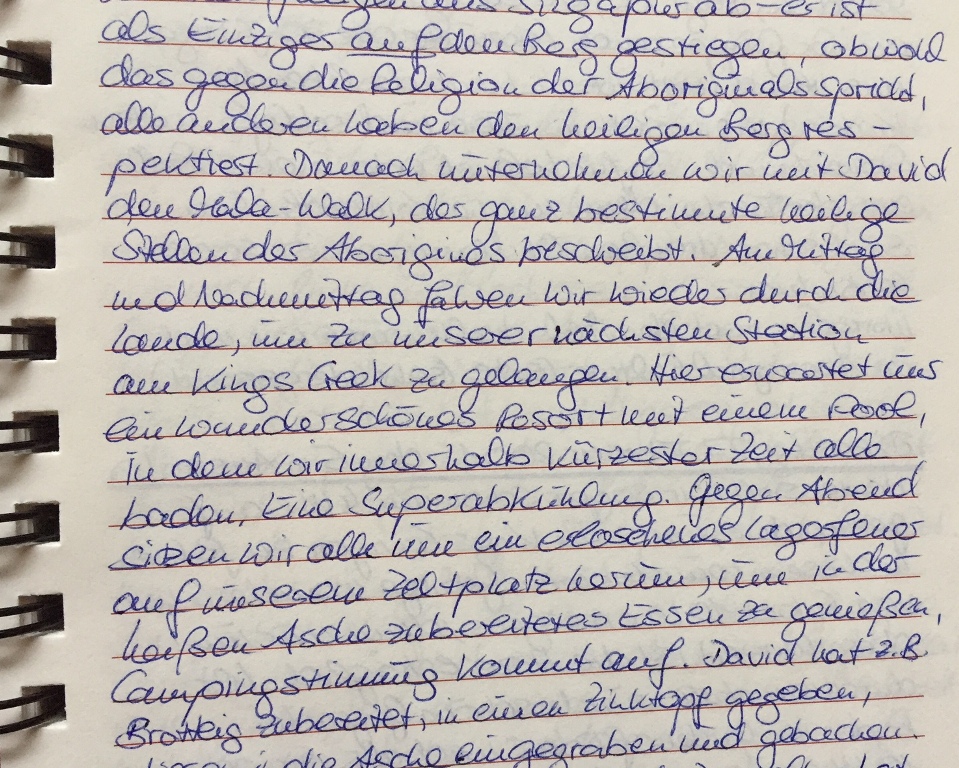 aus Singapur ab – es ist
als Einziger auf den Berg gestiegen, obwohl
das gegen die Religion der Aboriginals spricht,
alle anderen haben den heiligen Berg res-
pektiert. Danach unternehmen wir mit David
den Mala-Walk, der ganz bestimmte heilige
Stellen der Aborigines beschreibt. Am Mittag
und Nachmittag fahren wir wieder durch die
Lande, um zu unserer nächsten Station
am Kings Creek zu gelangen. Hier erwartet uns
ein wunderschönes Resort mit einem Pool,
in dem wir innerhalb kürzester Zeit alle
baden. Eine Superabkühlung. Gegen Abend
sitzen wir alle um ein erloschenes Lagerfeuer
auf unserem Zeltplatz herum, um in der
heißen Asche zubereitetes Essen zu genießen,
Campingstimmung kommt auf. David hat z.B.
Brotteig zubereitet, in einen Zinktopf gegeben,
in die Asche eingegraben und gebacken.